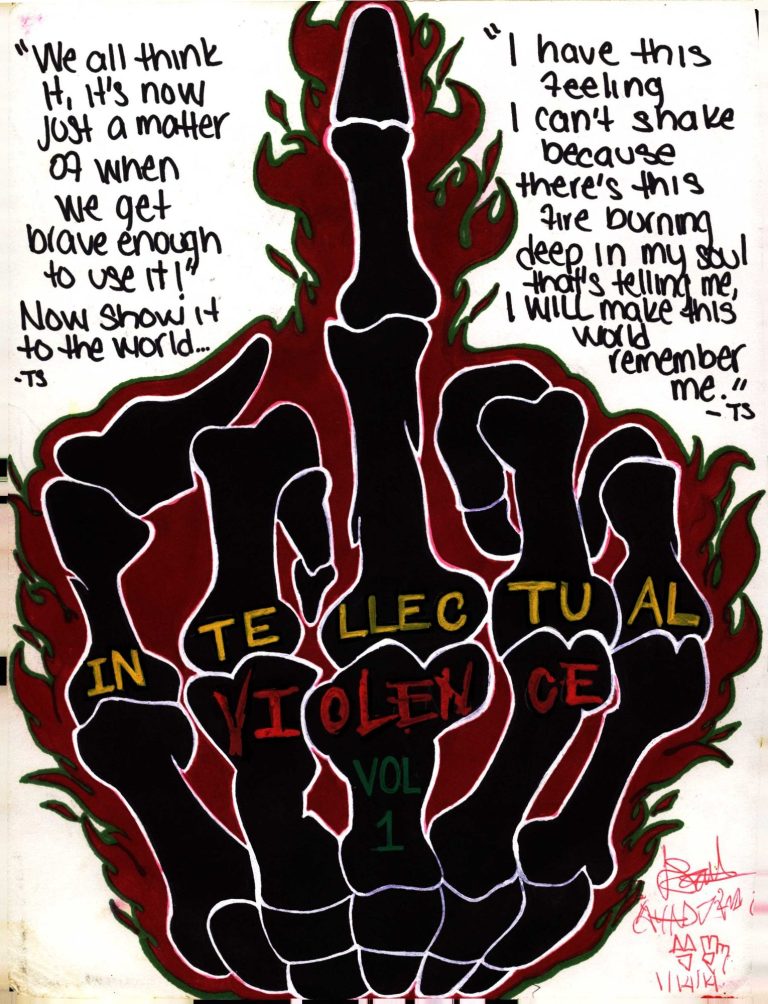 "We all think
it, it's now
just a matter
of when
we get
brave enough
to use it!"
Now show it
to the world...
-TS
"I have this
feeling
I can't shake
because
there's this
fire burning
deep in my soul
that's telling me,
I WILL make this
world
remember
me."
-TS
INTELLECTUAL
VIOLENCE
VOL
1